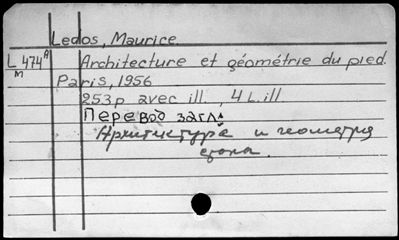 Ledos, Maurice.
L 474 A
M
Architecture et géométrie du pied.
Paris, 1956
253 p avec ill., 4 L. ill
Перевод загл:
Архитектура и геометрия